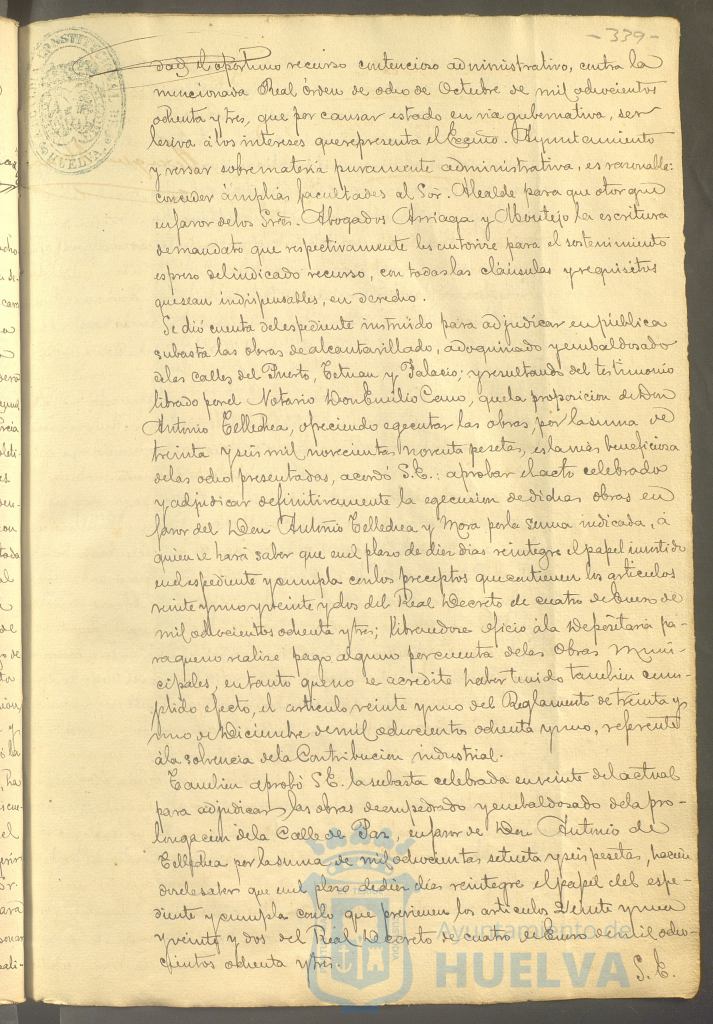 -339-
dad el oportuno recurso contencioso administrativo, contra la
mencionada Real Orden de ocho de Octubre de mil ochocientos
ochenta y tres, que por causar estado en via gubernativa, ser
lesiva á los intereses que representa el Excmo. Ayuntamiento
y versar sobre materia puramente administrativa, es razonable:
conceder ámplias facultades al Sor. Alcalde para que otorgue
en favor de los Sres. Abogados Arriaga y Montejo la escritura
de mandato que respectivamente les autorice para el sostenimiento
espreso del indicado recurso, con todas las cláusulas y requisitos
que sean indispensables, en derecho.
Se dió cuenta del espediente instruido para adjudicar en pública
subasta las obras de alcantarillado, adoquinado y embaldosado
de las calles del Puerto, Tetuan y Palacio; y resultando del testimonio
librado por el Notario Don Emilio Cano, que la proposicion de Don
Antonio Tellechea, ofreciendo egecutar las obras, por la suma de
treinta y seis mil novecientas noventa pesetas, es la más beneficiosa
de las ocho presentadas, acordó S.E.: aprobar el acto celebrado
y adjudicar definitivamente la egecusion de dichas obras en
favor del Don Antonio Tellechea y Mora por la suma indicada, á
quien se hará saber que en el plazo de diez dias reintegre el papel invertido
en el espediente y cumpla con los preceptos que contienen los articulos
veinte y uno y veinte y dos del Real Decreto de cuatro de Enero de
mil ochocientos ochenta y tres; librandose oficio á la Depositaria pa-
ra que no realize pago alguno por cuenta de las Obras Muni-
cipales, en tanto que no se acredite haber tenido tambien cum-
plido efecto, el articulo veinte y uno del Reglamento de treinta y
uno de Diciembre de mil ochocientos ochenta y uno, referente
á la solvencia de la Contribucion industrial.
Tambien aprobó S.E. la subasta celebrada en veinte del actual
para adjudicar las obras de empedrado y embaldosado de la pro-
longacion de la Calle de Paz, en favor de Don Antonio de
Tellechea por la suma de mil ochocientas setenta y seis pesetas, hacien-
dole saber que en el plazo de diez dias reintegre el papel del espe-
diente y cumpla con lo que previenen los articulos veinte y uno
y veinte y dos del Real Decreto de cuatro de Enero de mil ocho-
cientos ochenta y tres.
S. E.
Ayuntamiento de
HUELVA